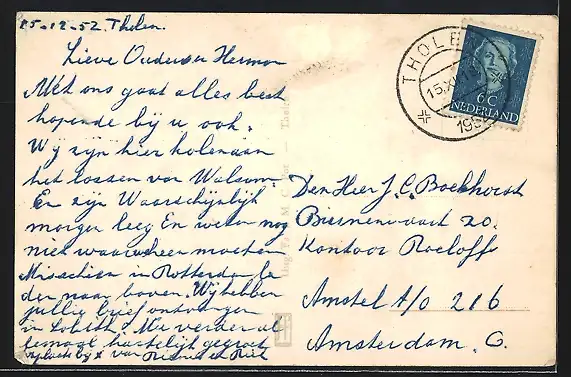 15-12-52. Tholen.
Lieve Ouders en Herman
Met ons gaat alles best
hopende bij u ook.
Wij zijn hier kolen aan
het lossen voor Walsum.
En zijn Waarschijnlijk
morgen leeg En weten nog
niet waarheen moeten
Misschien in Rotterdam la
den naar boven. Wij hebben
jullie brief ontvangen
in Lobith. Nu verder al
lemaal hartelijk gegroet
van en Riet
THOLEN
15.XII
195
6 C
NEDERLAND
Den Heer J. C. Boekhorst
Binnenvaart 20.
Kantoor Roeloffs
Amstel t/o 216
Amsterdam. C.
Uitg.